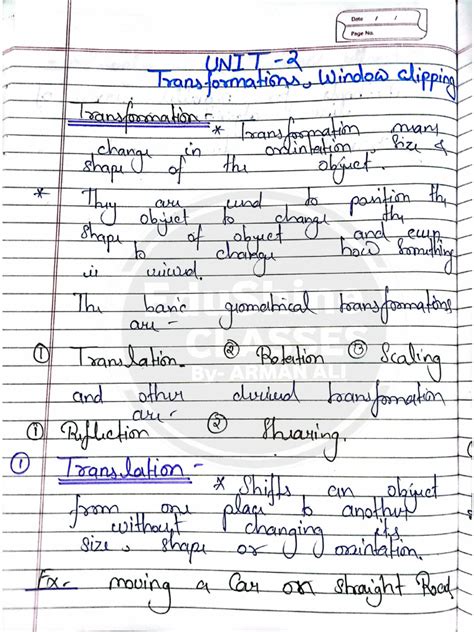 Date / /
Page No.
UNIT - 2
Transformations, Window clipping
Transformation -
* Transformation means
change in orientation, size &
shape of the object.
* They are used to position the
object to change the
shape of object and even
to change how something
is viewed.
The basic geometrical transformations
are -
① Translation. ② Rotation ③ Scaling
and other derived transformation
are -
① Reflection ② Shearing.
① Translation -
* Shifts an object
from one place to another
without changing its
size, shape or orientation.
Ex - moving a Car on straight Road
EduShine
CLASSES
By- ARMAN ALI